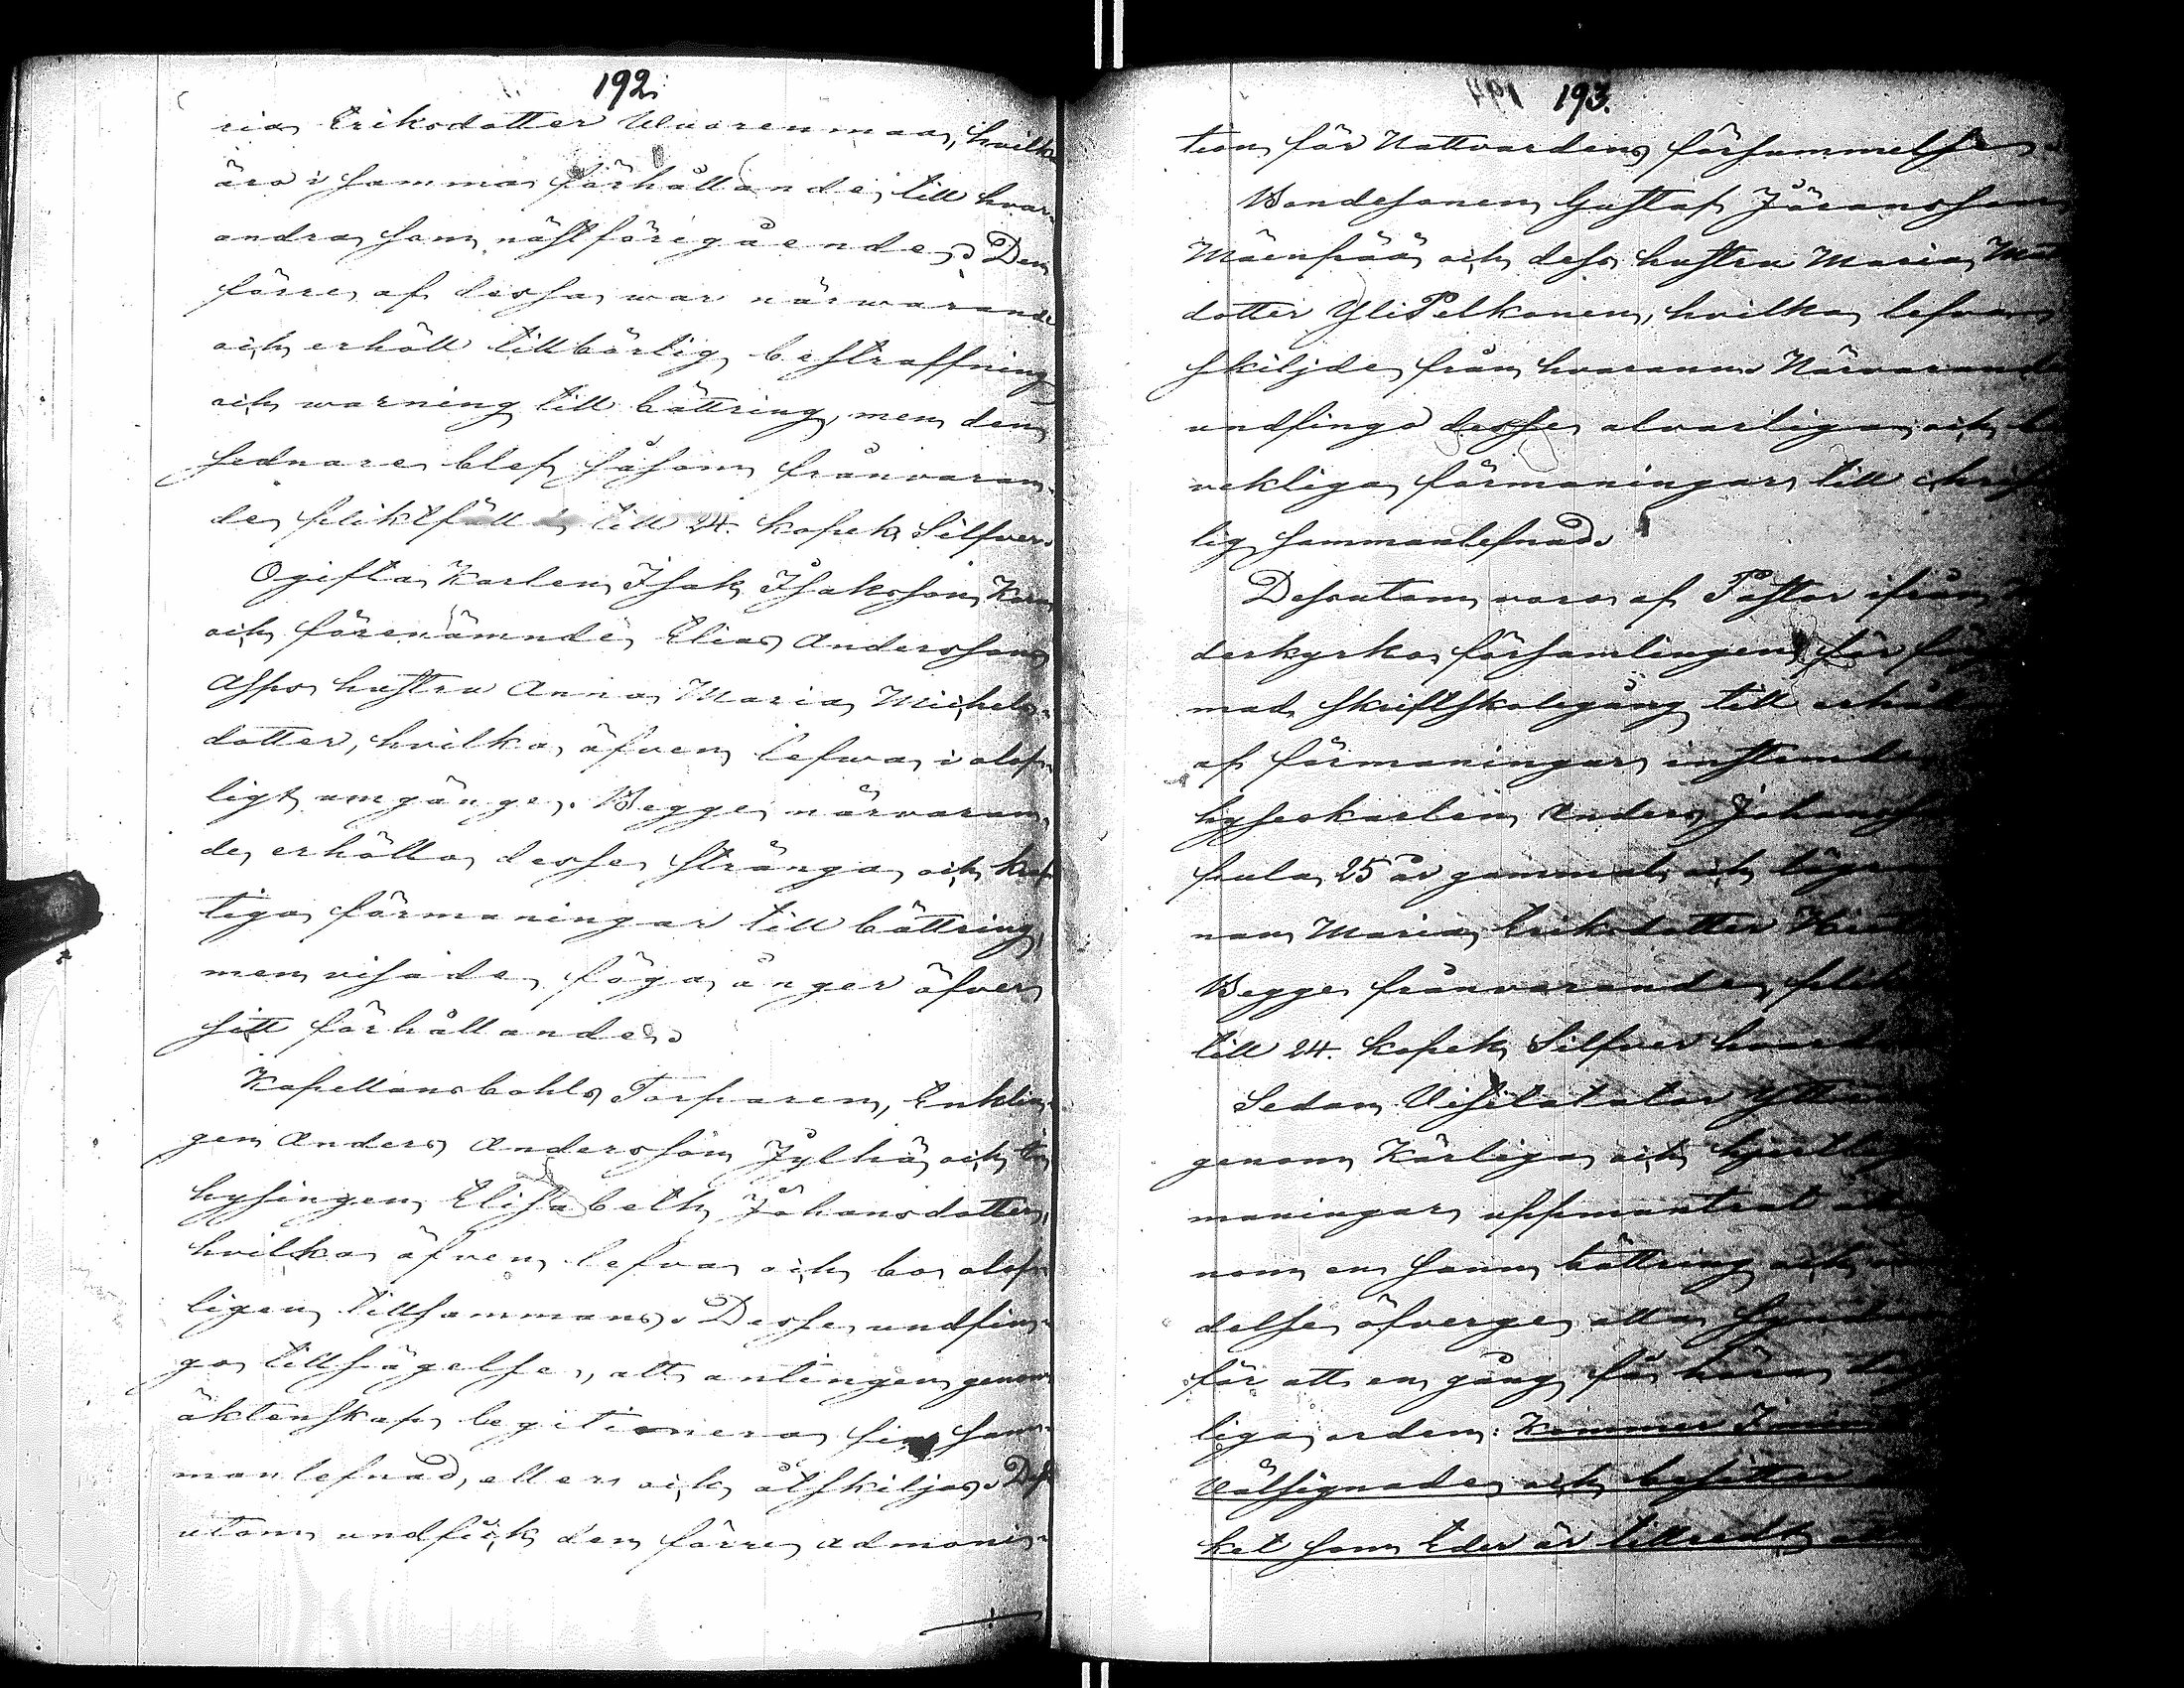 192.
ria Eriksdotter Wuorenmaa, hvilka
äro i samma förhållande till hvar-
andra som nästföregående. Den
förre af dessa war närwarande
och erhöll tillbörlig bestraffning
och warning till bättring, men den
sednare blef såsom frånvaran-
de pliktfälld till 24. kopek Silfver.
Ogifta Karlen Isak Isaksson
och förenämnde Elias Anderssons
Aspo hustru Anna Maria Michels-
dotter, hvilka äfven lefwa i olof-
ligt umgänge. Begge närvaran-
de erhöllo desse stränga och kraf-
tiga förmaningar till bättring,
men visade föga ånger öfver
sitt förhållande.
Kapellansbohls Torparen, Enklin-
gen Anders Andersson Jylhä och In-
hysingen Elisabeth Johansdotter,
hvilka äfven lefva och bo olof-
ligen tillsammans. Desse undfin-
go tillsägelse, att antingen genom
äktenskap legitimera sin sam-
manlefnad, eller och åtskiljas. Dess-
utom undfick den förre admoni-
193.
tion för Nattvardens försummelse.
Bondesonen Gustaf Jöransson
Mäenpää och dess hustru Maria
dotter YliPelkonen, hvilka lefva
skiljde från hvarann. Närvarande
undfingo desse alvarliga och
vekliga förmaningar till christ-
lig sammanlefnad.
Dessutom voro af Pastor ifrån
derkyrko församlingen för
mad skriftskolegång till
af förmaningar instemde
hyseskarlen Anders Johansson
pula 25 år gammal och
nan Maria Eriksdotter
Begge frånvarande
till 24. kopek Silfver
Sedan Visitator
genom kärliga och
maningar uppmuntrat
nom en sann bättring och
delse öfverge alla
för att en gång få höra
liga orden: Kommer
Välsignade och besitter
ket som Eder är tillredt